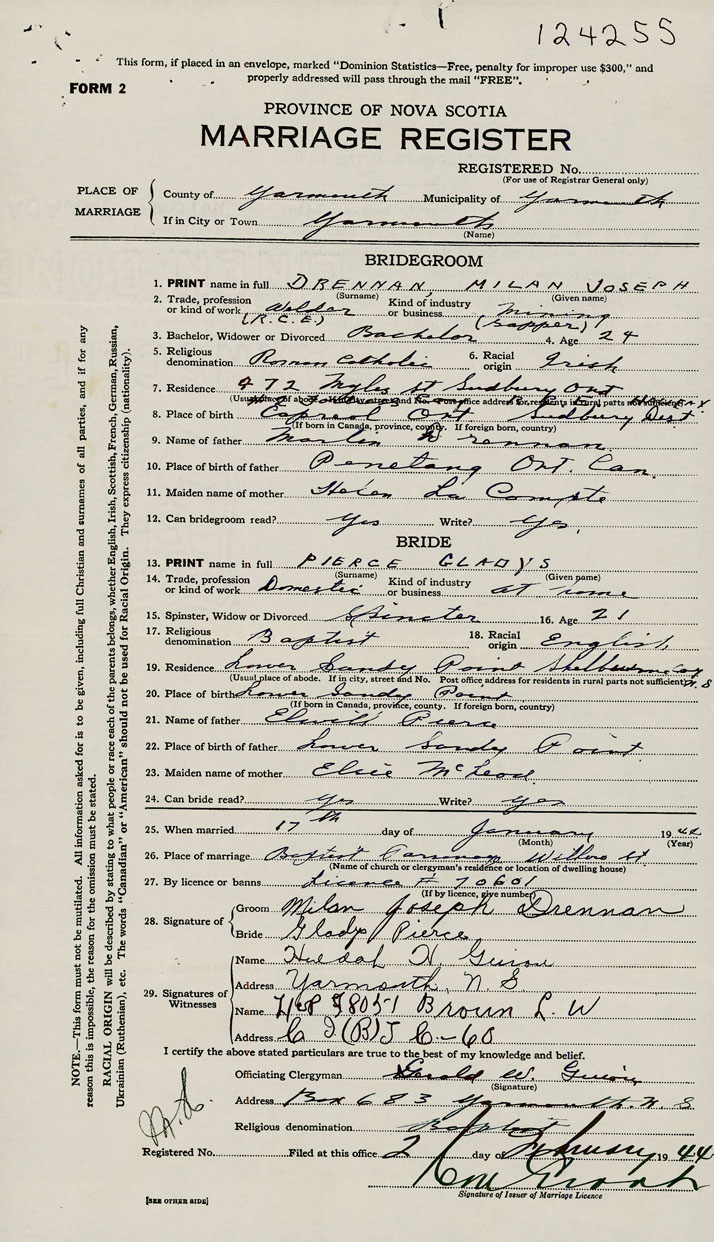 124255
This form, if placed in an envelope, marked "Dominion Statistics—Free, penalty for improper use $300," and
properly addressed will pass through the mail "FREE".
FORM 2
PROVINCE OF NOVA SCOTIA
MARRIAGE REGISTER
REGISTERED No.
(For use of Registrar General only)
PLACE OF MARRIAGE
County of Yarmouth Municipality of Yarmouth
If in City or Town Yarmouth
(Name)
BRIDEGROOM
1. PRINT name in full DRENNAN, MILAN JOSEPH
(Surname) (Given name)
2. Trade, profession or kind of work Welder (R.C.E.) Kind of industry or business Mining (Sapper)
3. Bachelor, Widower or Divorced Bachelor 4. Age 24
5. Religious denomination Roman Catholic 6. Racial origin Irish
7. Residence 472 Myles St Sudbury Ont
(Usual place of abode. If in city, street and No. Post office address for residents in rural parts not sufficient)
8. Place of birth Capreol Ont Sudbury Dist
(If born in Canada, province, county. If foreign born, country)
9. Name of father Drennan
10. Place of birth of father Penetang Ont. Can.
11. Maiden name of mother Helen La Compte
12. Can bridegroom read? Yes Write? Yes.
BRIDE
13. PRINT name in full PIERCE GLADYS
(Surname) (Given name)
14. Trade, profession or kind of work Domestic Kind of industry or business at home
15. Spinster, Widow or Divorced Spinster 16. Age 21
17. Religious denomination Baptist 18. Racial origin English
19. Residence Lower Sandy Point Shelburne Co N.S
(Usual place of abode. If in city, street and No. Post office address for residents in rural parts not sufficient)
20. Place of birth Lower Sandy Point
(If born in Canada, province, county. If foreign born, country)
21. Name of father Pierce
22. Place of birth of father Lower Sandy Point
23. Maiden name of mother Elsie McLeod
24. Can bride read? Yes Write? Yes
25. When married 17th day of January 1944
(Month) (Year)
26. Place of marriage Baptist Parsonage Willow St
(Name of church or clergyman's residence or location of dwelling house)
27. By licence or banns Licence # 70601
(If by licence, give number)
28. Signature of
Groom Milan Joseph Drennan
Bride Gladys Pierce
29. Signatures of Witnesses
Name H. Guiou
Address Yarmouth, N. S
Name Brown L. W
Address
I certify the above stated particulars are true to the best of my knowledge and belief.
Officiating Clergyman Gerald W. Guiou
(Signature)
Address Box 683 Yarmouth. N. S
Religious denomination Baptist
Registered No. Filed at this office 2 day of February 1944
Signature of Issuer of Marriage Licence
[SEE OTHER SIDE]
NOTE.—This form must not be mutilated. All information asked for is to be given, including full Christian and surnames of all parties, and if for any
reason this is impossible, the reason for the omission must be stated.
RACIAL ORIGIN will be described by stating to what people or race each of the parents belongs, whether English, Irish, Scottish, French, German, Russian,
Ukrainian (Ruthenian), etc. The words "Canadian" or "American" should not be used for Racial Origin. They express citizenship (nationality).